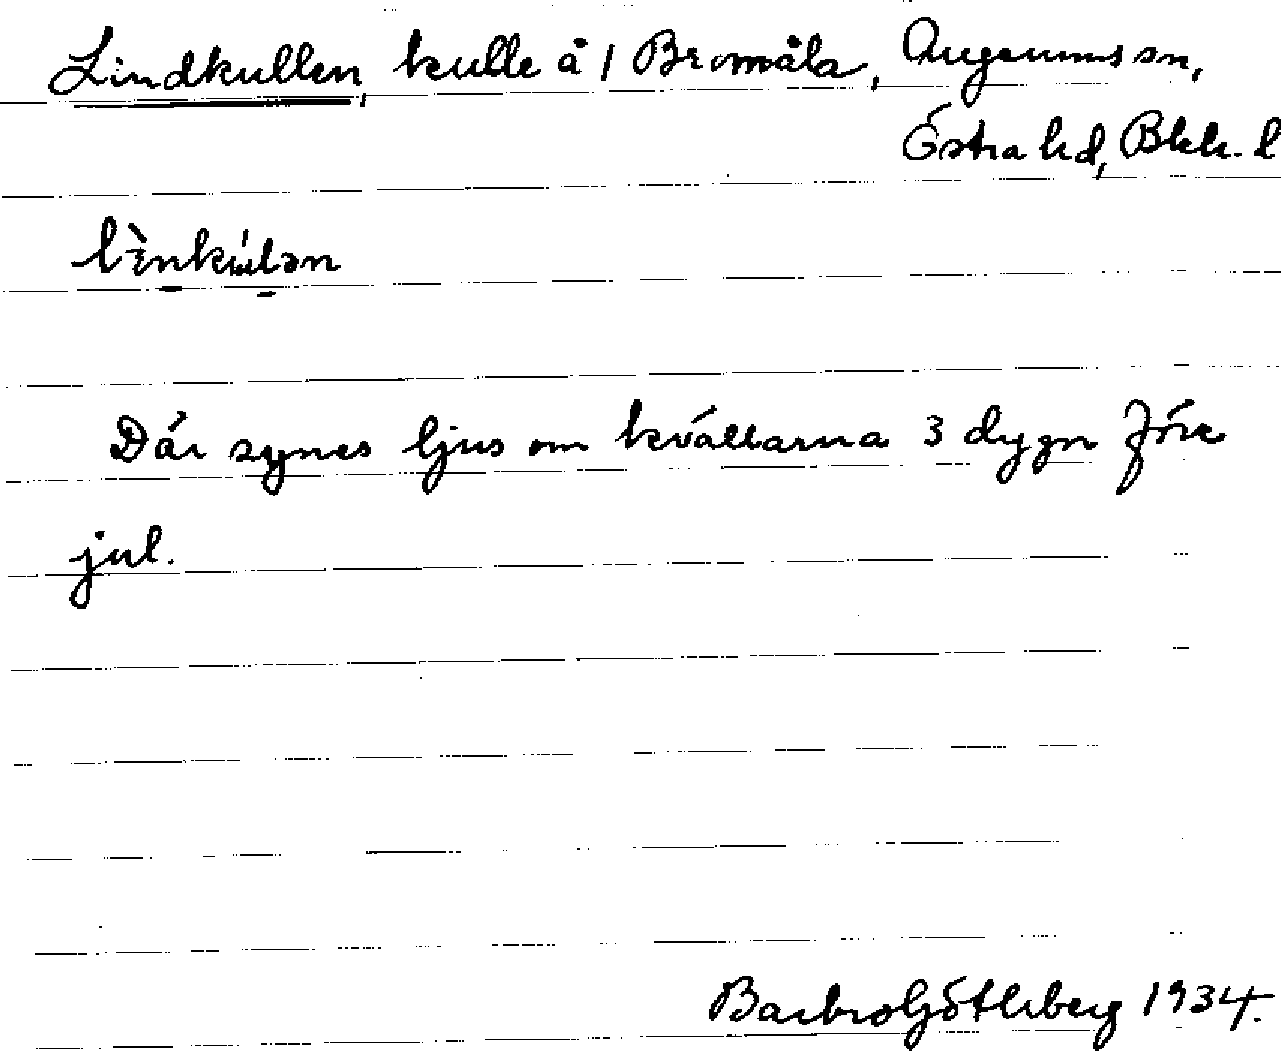 Lindkullen, kulle å 1 Bromåla, Augerums sn,
Östra hd, Blek. l
Där synes ljus om kvällarna 3 dygn före
jul.
Barbro Götherberg 1934.